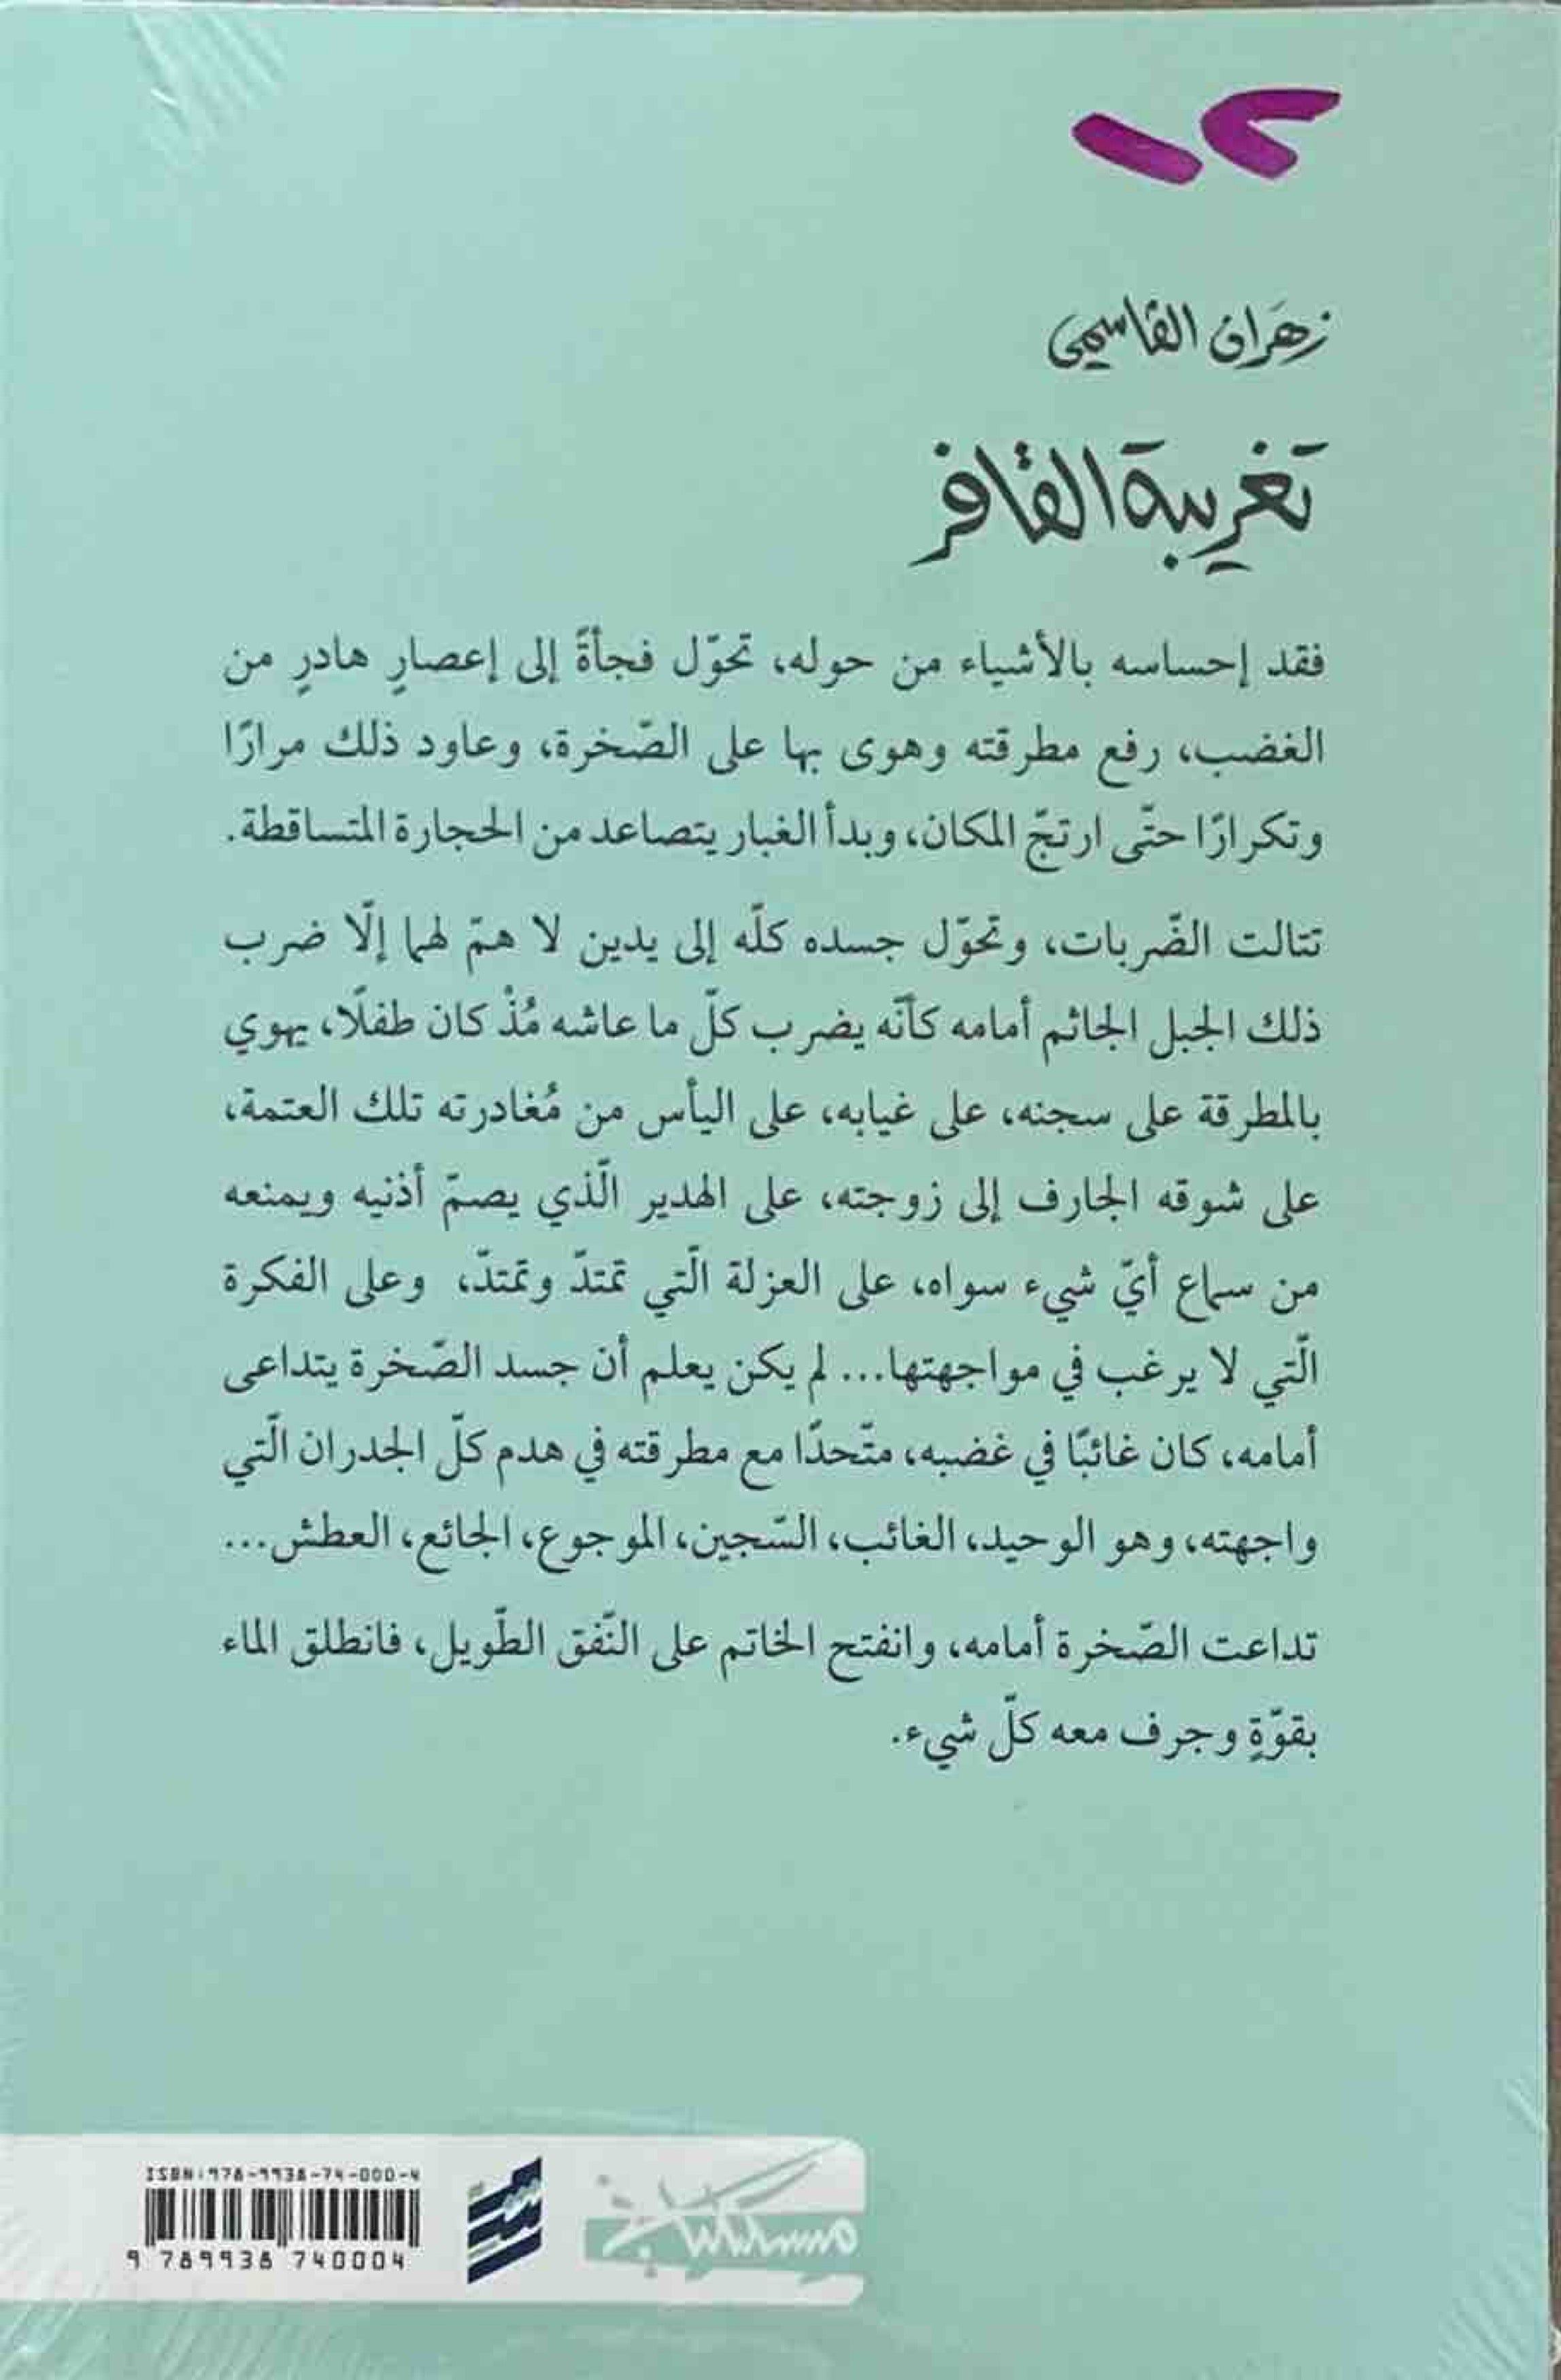 زهران القاسمي
تغريبة القافر
فقد إحساسه بالأشياء من حوله، تحوّل فجأةً إلى إعصارٍ هادرٍ من
الغضب، رفع مطرقته وهوى بها على الصّخرة، وعاود ذلك مرارًا
وتكرارًا حتّى ارتجّ المكان، وبدأ الغبار يتصاعد من الحجارة المتساقطة.
تتالت الضّربات، وتحوّل جسده كلّه إلى يدين لا همّ لهما إلّا ضرب
ذلك الجبل الجاثم أمامه كأنّه يضرب كلّ ما عاشه مُذْ كان طفلًا، يهوي
بالمطرقة على سجنه، على غيابه، على اليأس من مُغادرته تلك العتمة،
على شوقه الجارف إلى زوجته، على الهدير الّذي يصمّ أذنيه ويمنعه
من سماع أيّ شيء سواه، على العزلة الّتي تمتدّ وتمتدّ، وعلى الفكرة
الّتي لا يرغب في مواجهتها... لم يكن يعلم أن جسد الصّخرة يتداعى
أمامه، كان غائبًا في غضبه، متّحدًا مع مطرقته في هدم كلّ الجدران الّتي
واجهته، وهو الوحيد، الغائب، السّجين، الموجوع، الجائع، العطش...
تداعت الصّخرة أمامه، وانفتح الخاتم على النّفق الطّويل، فانطلق الماء
بقوّةٍ وجرف معه كلّ شيء.
مسكيلياني
ISBN:978-9938-74-000-4
9 789938 740004